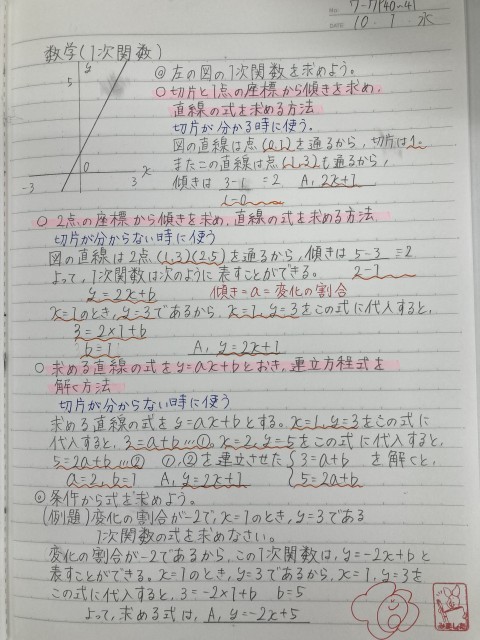 7-7(40~4)
No.
DATE 10. 1 水
数学(1次関数)
y
5
0
x
-3
3
◎左の図の1次関数を求めよう。
○切片と1点の座標から傾きを求め、
直線の式を求める方法
切片が分かる時に使う。
図の直線は点(0,1)を通るから、切片は1。
またこの直線は点(1,3)も通るから、
傾きは 3-1 =2 A, 2x+1
1-0
○2点の座標から傾きを求め、直線の式を求める方法、
切片が分からない時に使う
図の直線は2点(1,3)(2,5)を通るから、傾きは 5-3 =2
2-1
よって、1次関数は次のように表すことができる。
y=2x+b 傾き=a=変化の割合
x=1のとき、y=3であるから、x=1,y=3をこの式に代入すると、
3=2×1+b
b=1 A, y=2x+1
○求める直線の式をy=ax+bとおき、連立方程式を
解く方法
切片が分からない時に使う
求める直線の式をy=ax+bとする。x=1,y=3をこの式に
代入すると、3=a+b…①。x=2,y=5をこの式に代入すると、
5=2a+b…② ①,②を連立させた{3=a+b を解くと、
a=2,b=1 A, y=2x+1 5=2a+b
◎条件から式を求めよう。
(例題)変化の割合が-2で、x=1のとき、y=3である
1次関数の式を求めなさい。
変化の割合が-2であるから、この1次関数は、y=-2x+bと
表すことができる。x=1のとき、y=3であるから、x=1,y=3を
この式に代入すると、3=-2×1+b b=5
よって、求める式は、A, y=-2x+5
みました